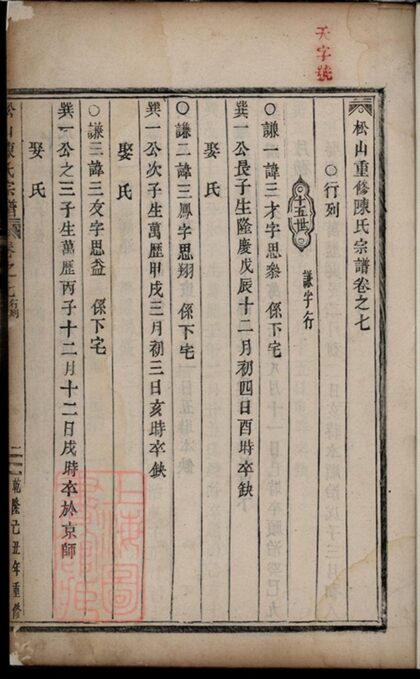 天字號
松山重修陳氏宗譜卷之七
○行列
十五世　謙字行
○謙一諱三才字思泰　係下宅
巽一公長子生隆慶戊辰十二月初四日酉時卒缺
娶氏
○謙二諱三鳳字思翔　係下宅
巽一公次子生萬歷甲戌三月初三日亥時卒缺
娶氏
○謙三諱三友字思益　係下宅
巽一公之三子生萬歷丙子十二月十二日戌時卒於京師
娶氏
松山陳氏宗譜　卷之七　行列　一　乾隆己丑年重修
上海圖書館